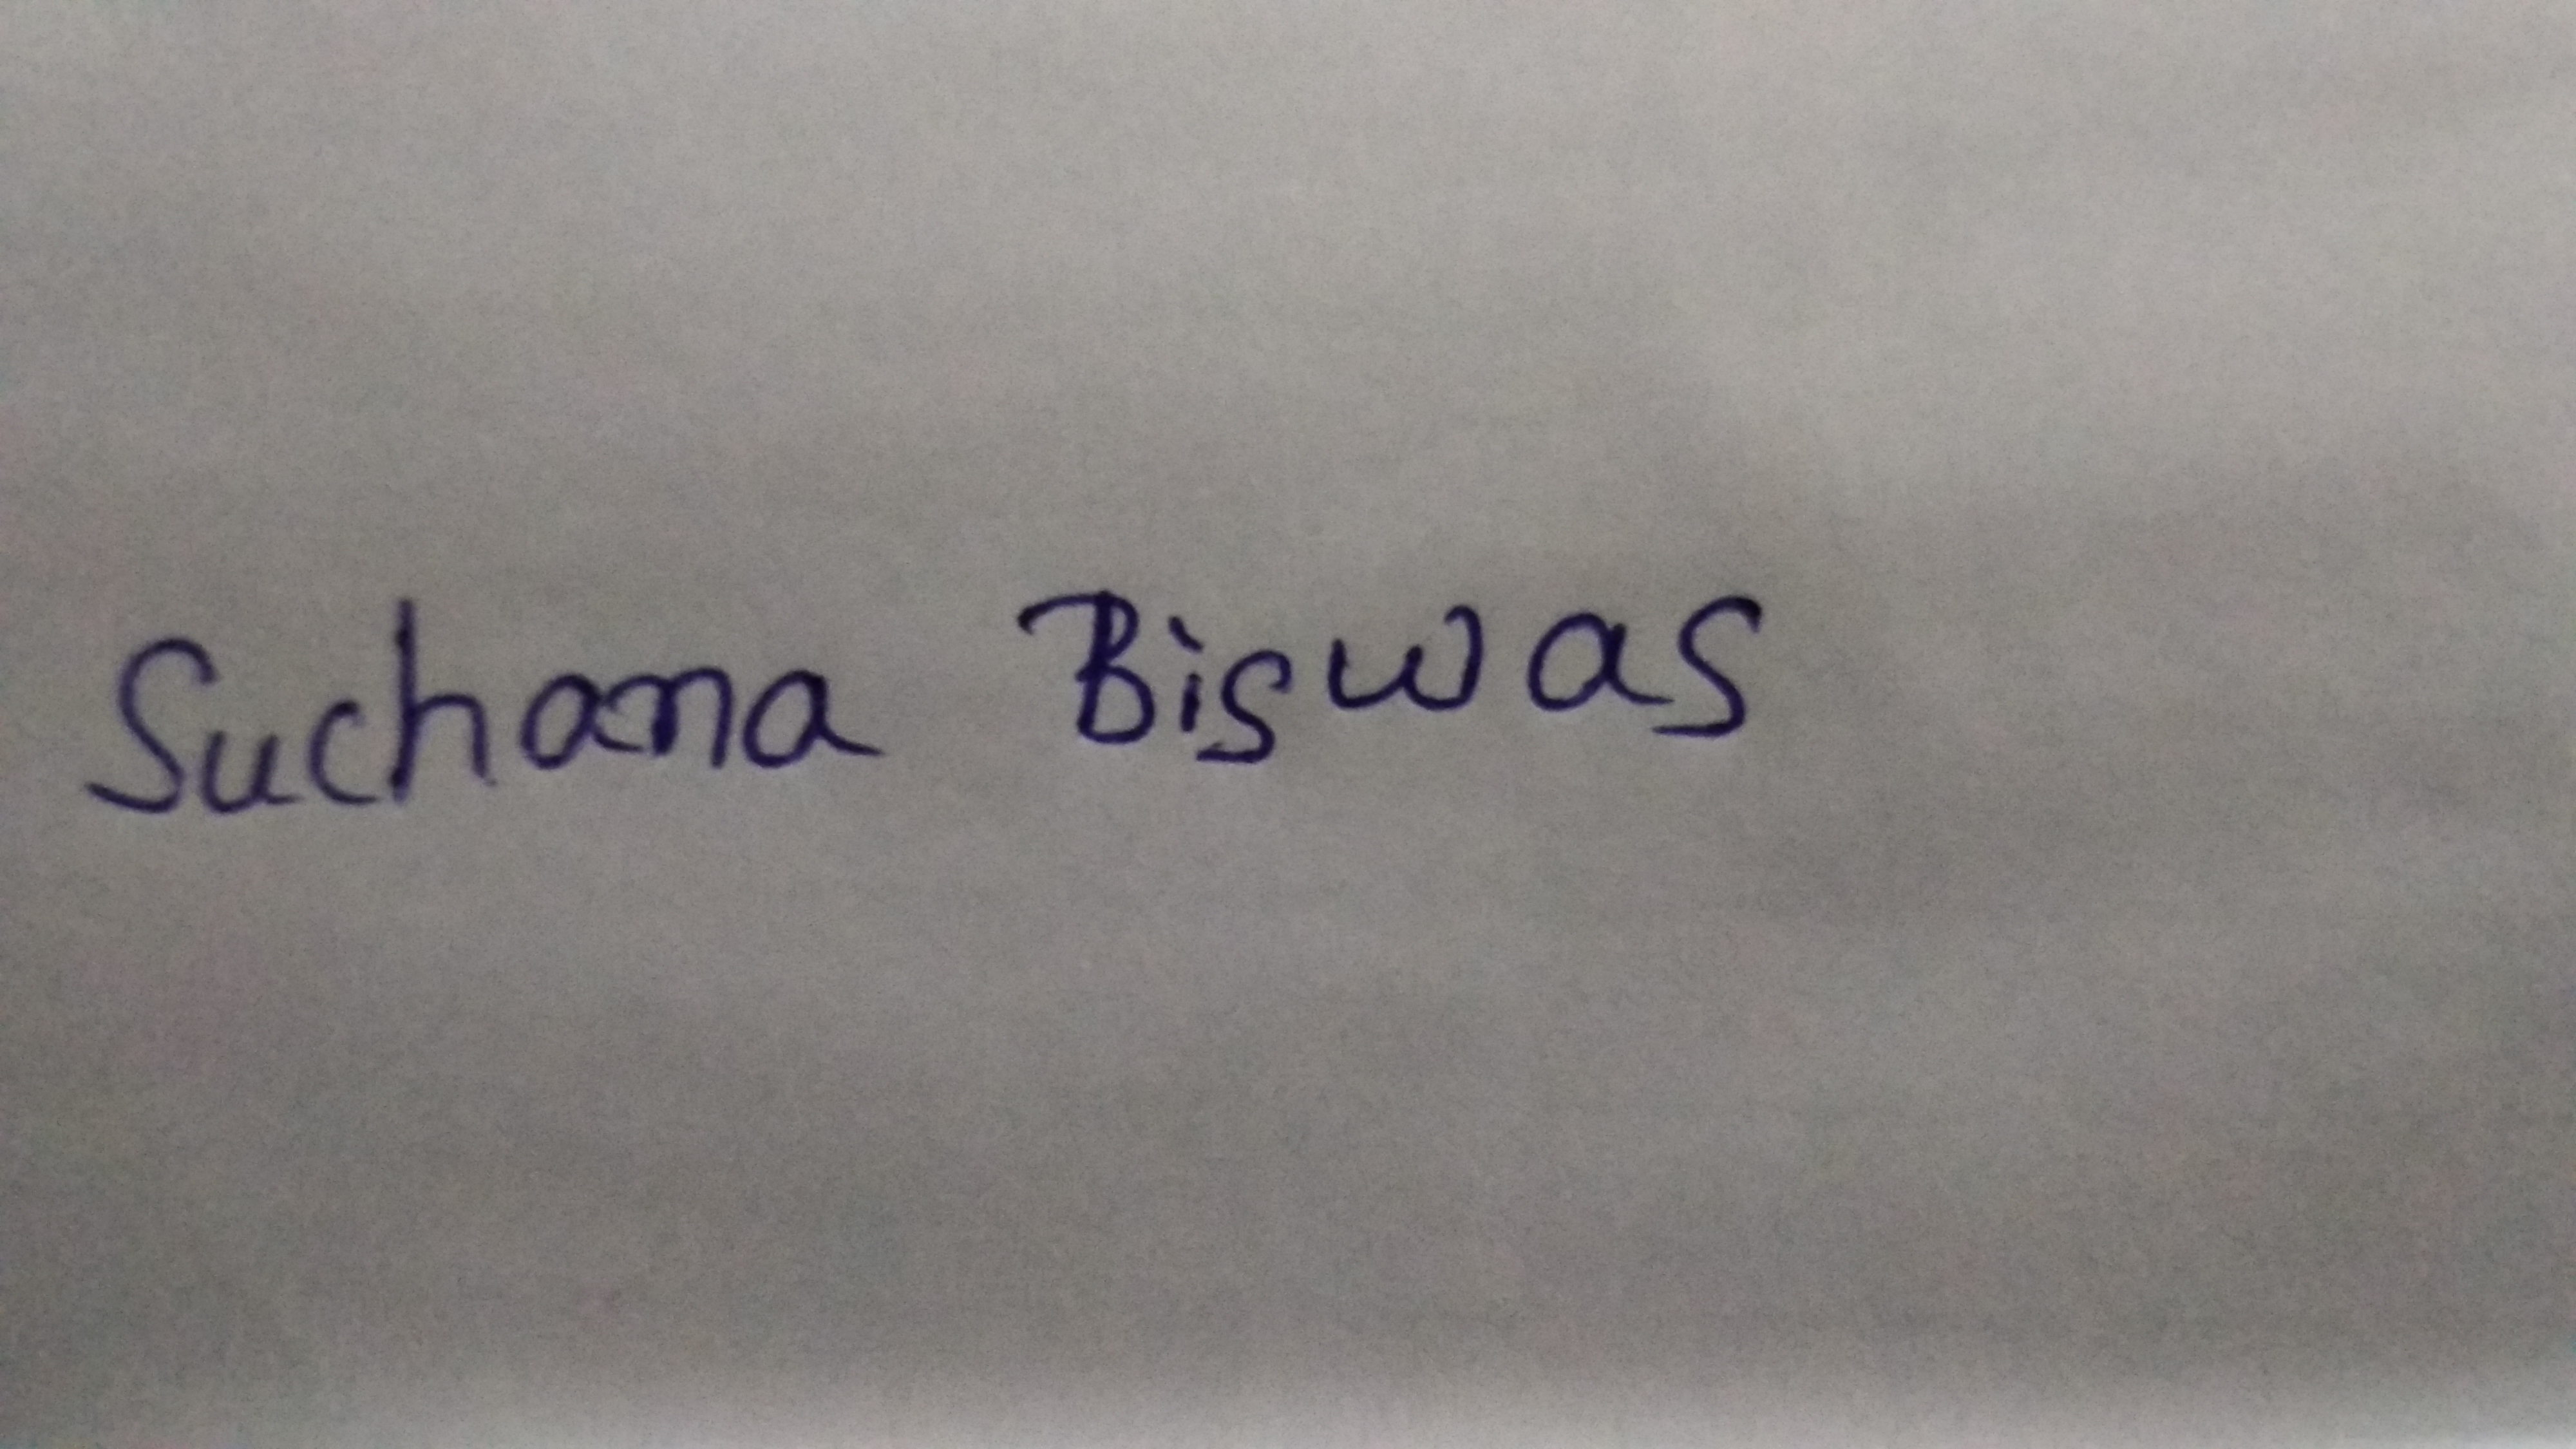 Suchoma Biswas